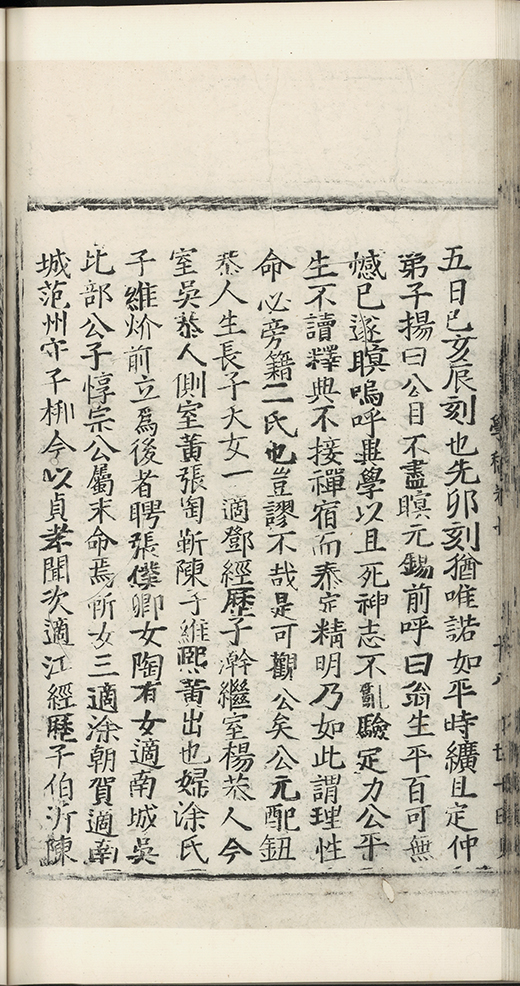 五日已亥辰刻也先卯刻猶唯諾如平時纊且定仲
弟子揚曰公目不盡瞑元錫前呼曰翁生平百可無
憾已遂瞑嗚呼學以且死神志不亂驗定力公平
生不讀釋典不接禪宿而泰定精明乃如此謂理性
命必旁籍二氏也豈謬不哉是可觀公矣公元配鈕
恭人生長子大女一適鄧經歷子瀚繼室楊恭人今
室吳恭人側室黃張陶靳陳子維熙黃出也婦涂氏
子維炌前立焉後者聘張僕卿女陶有女適南城吳
比部公子惇宗公屬末命焉所女三適涂朝賀適南
城范州守子栁今以貞孝聞次適江經歷子伯沂陳